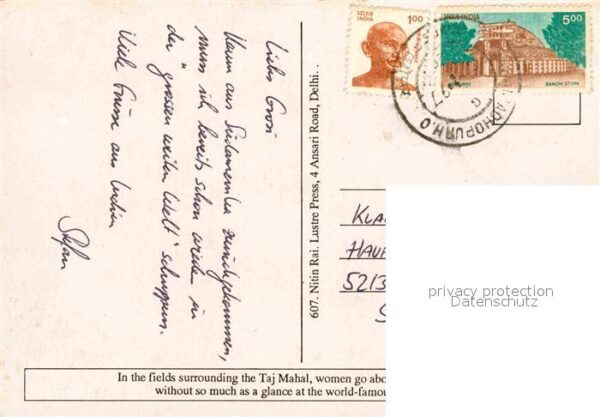 Liebs Grosi
Kaum aus Südamerika zurückgekommen,
muss ich bereits schon wieder in
der "grossen weiten Welt" schnuppern.
Viele Grüsse aus Indien
Stefan
607. Nitin Rai. Lustre Press, 4 Ansari Road, Delhi.
भारत
INDIA
1.00
भारत INDIA
5.00
SANCHI STUPA
ADHOPUR H.O
KLA
HAU
5213
privacy protection
Datenschutz
In the fields surrounding the Taj Mahal, women go abo
without so much as a glance at the world-famou